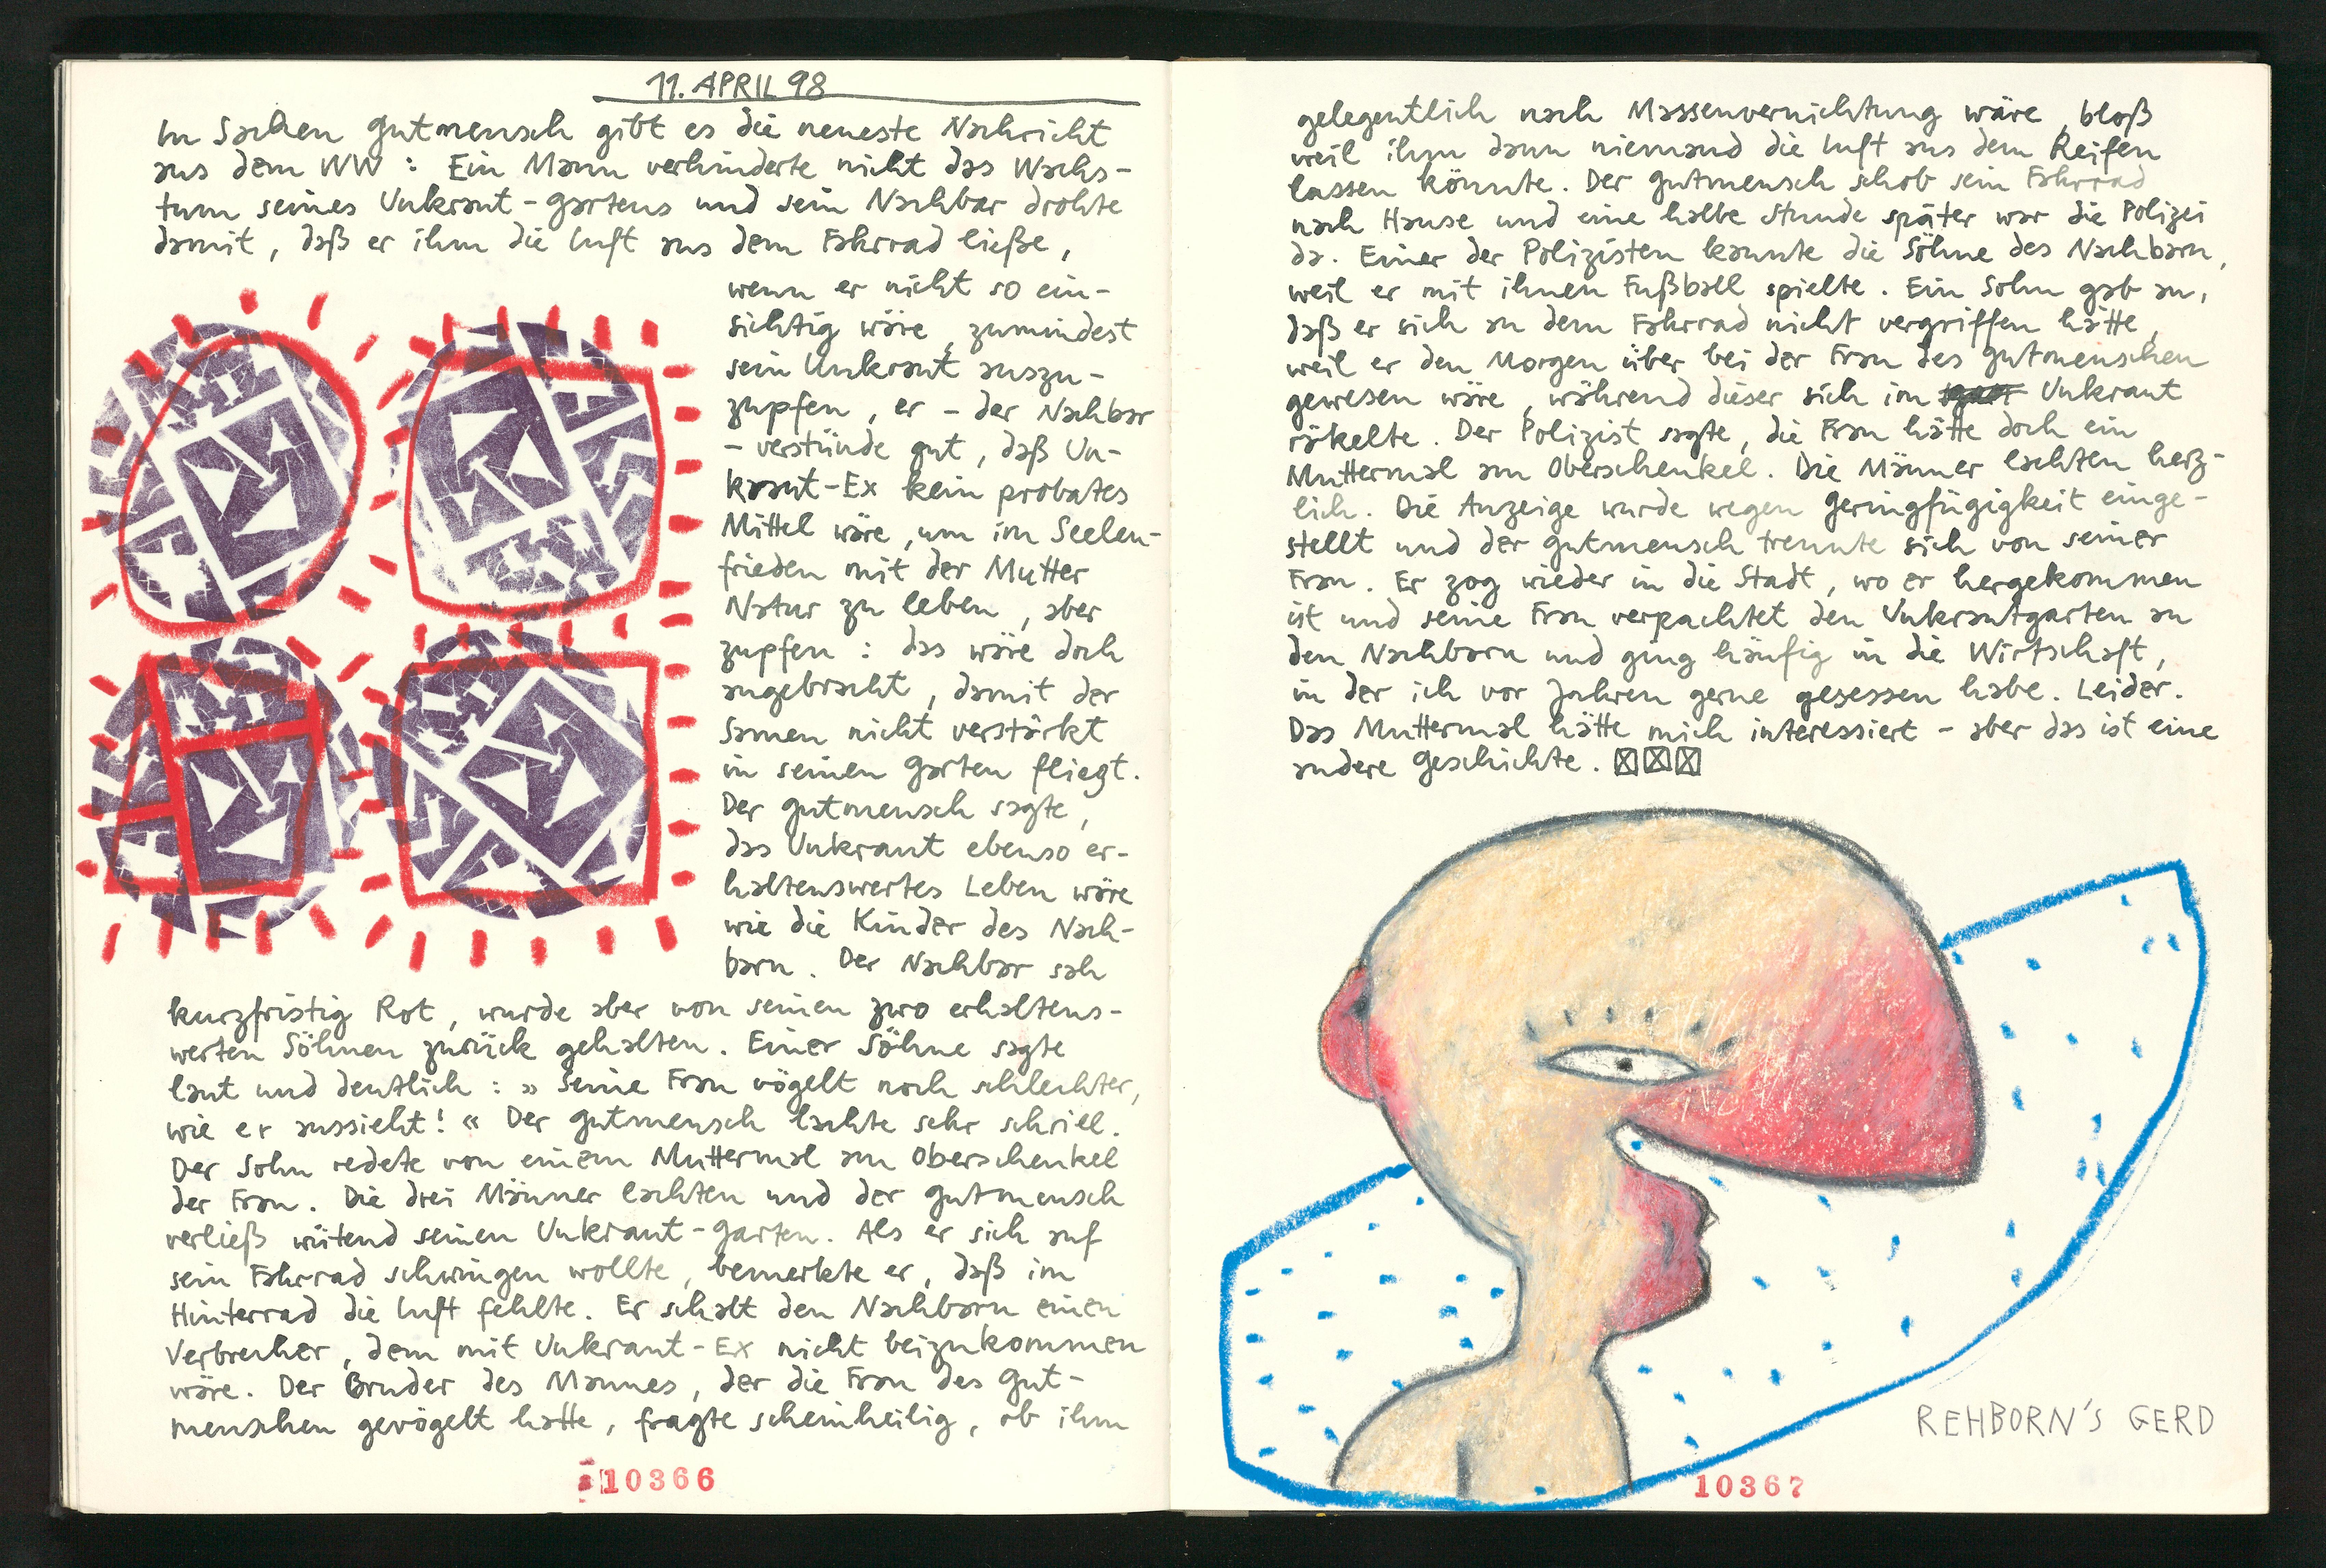 11. APRIL 98
In Sachen Gutmensch gibt es die neueste Nachricht
aus dem WW : Ein Mann verhinderte nicht das Wachs-
tum seines Unkraut-Gartens und sein Nachbar drohte
damit, daß er ihm die Luft aus dem Fahrrad ließe,
wenn er nicht so ein-
sichtig wäre, zumindest
sein Unkraut auszu-
zupfen, er - der Nachbar
- verstünde gut, daß Un-
kraut-Ex kein probates
Mittel wäre, um im Seelen-
frieden mit der Mutter
Natur zu leben, aber
zupfen : das wäre doch
angebracht, damit der
Samen nicht verstärkt
in seinen Garten fliegt.
Der Gutmensch sagte,
das Unkraut ebenso er-
haltenswertes Leben wäre
wie die Kinder des Nach-
barn. Der Nachbar sah
kurzfristig Rot, wurde aber von seinen zwo erhaltens-
werten Söhnen zurück gehalten. Einer Söhne sagte
laut und deutlich : » Seine Frau vögelt noch schlechter,
wie er aussieht! « Der Gutmensch lachte sehr schrill.
Der Sohn redete von einem Muttermal am Oberschenkel
der Frau. Die drei Männer lachten und der Gutmensch
verließ wütend seinen Unkraut-Garten. Als er sich auf
sein Fahrrad schwingen wollte, bemerkte er, daß im
Hinterrad die Luft fehlte. Er schalt den Nachbarn einen
Verbrecher, dem mit Unkraut-Ex nicht beizukommen
wäre. Der Bruder des Mannes, der die Frau des Gut-
menschen gevögelt hatte, fragte scheinheilig, ob ihm
10366
gelegentlich nach Massenvernichtung wäre, bloß
weil ihm dann niemand die Luft aus dem Reifen
lassen könnte. Der Gutmensch schob sein Fahrrad
nach Hause und eine halbe Stunde später war die Polizei
da. Einer der Polizisten kannte die Söhne des Nachbarn,
weil er mit ihnen Fußball spielte. Ein Sohn gab an,
daß er sich an dem Fahrrad nicht vergriffen hätte,
weil er den Morgen über bei der Frau des Gutmenschen
gewesen wäre, während dieser sich im Unkraut
räkelte. Der Polizist sagte, die Frau hätte doch ein
Muttermal am Oberschenkel. Die Männer lachten herz-
lich. Die Anzeige wurde wegen Geringfügigkeit einge-
stellt und der Gutmensch trennte sich von seiner
Frau. Er zog wieder in die Stadt, wo er hergekommen
ist und seine Frau verpachtet den Unkrautgarten an
den Nachbarn und ging häufig in die Wirtschaft,
in der ich vor Jahren gerne gesessen habe. Leider.
Das Muttermal hätte mich interessiert - aber das ist eine
andere Geschichte.
REHBORN'S GERD
10367